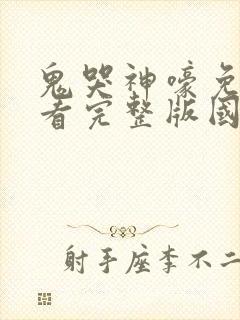 鬼哭神嚎免
看完整版國
射手座李不二